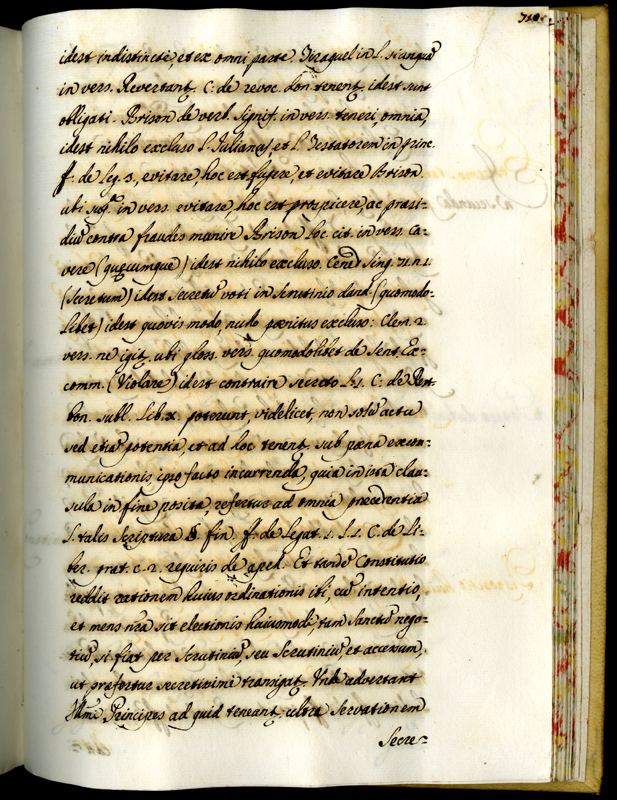 idest indistincte, et ex omni parte. Tiraquel in L. si unquã
in vers. Revertant. C. de revoc. don. tenent, idest sunt
obligati. Brison de verb. signif. in vers. teneri, omnia,
idest nihilo excluso L. Iulianus, et L. Testatorem in princ.
ff. de leg. 3., evitare, hoc est fugere, et evitare Brison.
ubi sup.ª in vers. evitare, hoc est prospicere, ac præsi-
diũ contra fraudis munire Brison loc. cit. in vers. Ca-
vere (quęcumque) idest nihilo excluso. Cened. sing. 71. n. 1.
(secretum) idest secretũ voti in scrutinio dand. (quomodo-
libet) idest quovis modo, nullo pænitus excluso: Clem. 2.
vers. ne igit. ubi gloss. vers. quomodolibet de sent. Ex-
comm. (Violare) idest contraire secreto L. 1. C. de
bon. subl. Lib. X. poterunt, videlicet, non solũ actu
sed etiã potentia, et ad hoc tenent. sub pæna excom-
municationis ipso facto incurrenda, quia in ista clau-
sula in fine posita, refertur ad omnia præcedentia
L. talis scriptura §. fin. ff. de Legat. 1. L. 1. C. de Li-
ber. præt. c. 2. requiris de apell. Et tandẽ Constitutio
reddit rationem huius ordinationis ibi, cũ intentio,
et mens nr̃a sit electionis huiusmodi, tam sanctũ nego-
tiũ, si fiat per scrutiniũ, seu scrutiniũ et accessum,
ut præfertur secretissime transigat. Unde advertant
Ill.mi Principes ad quid teneant. ultra servationem
Secre-